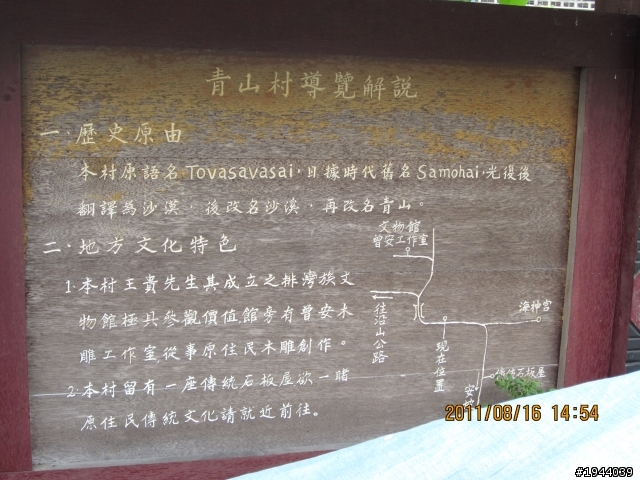 青山村導覽解說
一.歷史原由
本村原語名Tovasavasai,日據時代舊名Samohai,光復後
翻譯為沙漠,後改名沙溪,再改名青山。
二.地方文化特色
1.本村王貴先生其成立之排灣族文
物館極具參觀價值,館旁有曾安木
雕工作室,從事原住民木雕創作。
2.本村留有一座傳統石板屋欲一睹
原住民傳統文化請就近前往。
文物館
曾安工作室
往沿山公路
現在位置
海神宮
傳統石板屋
安坡
2011/08/16 14:54
#1944039